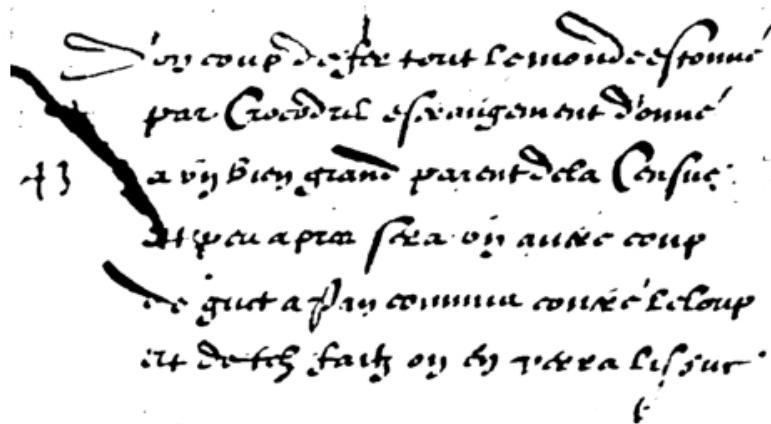 D' vn coup de fer tout le monde estonné
par Crocodril estrangement donné
43 a vn bien grand parent de la Censuë
Et peu apres sera vn autre coup
de guet a pan commis contre le loup
et de telz faitz on en verra lissue